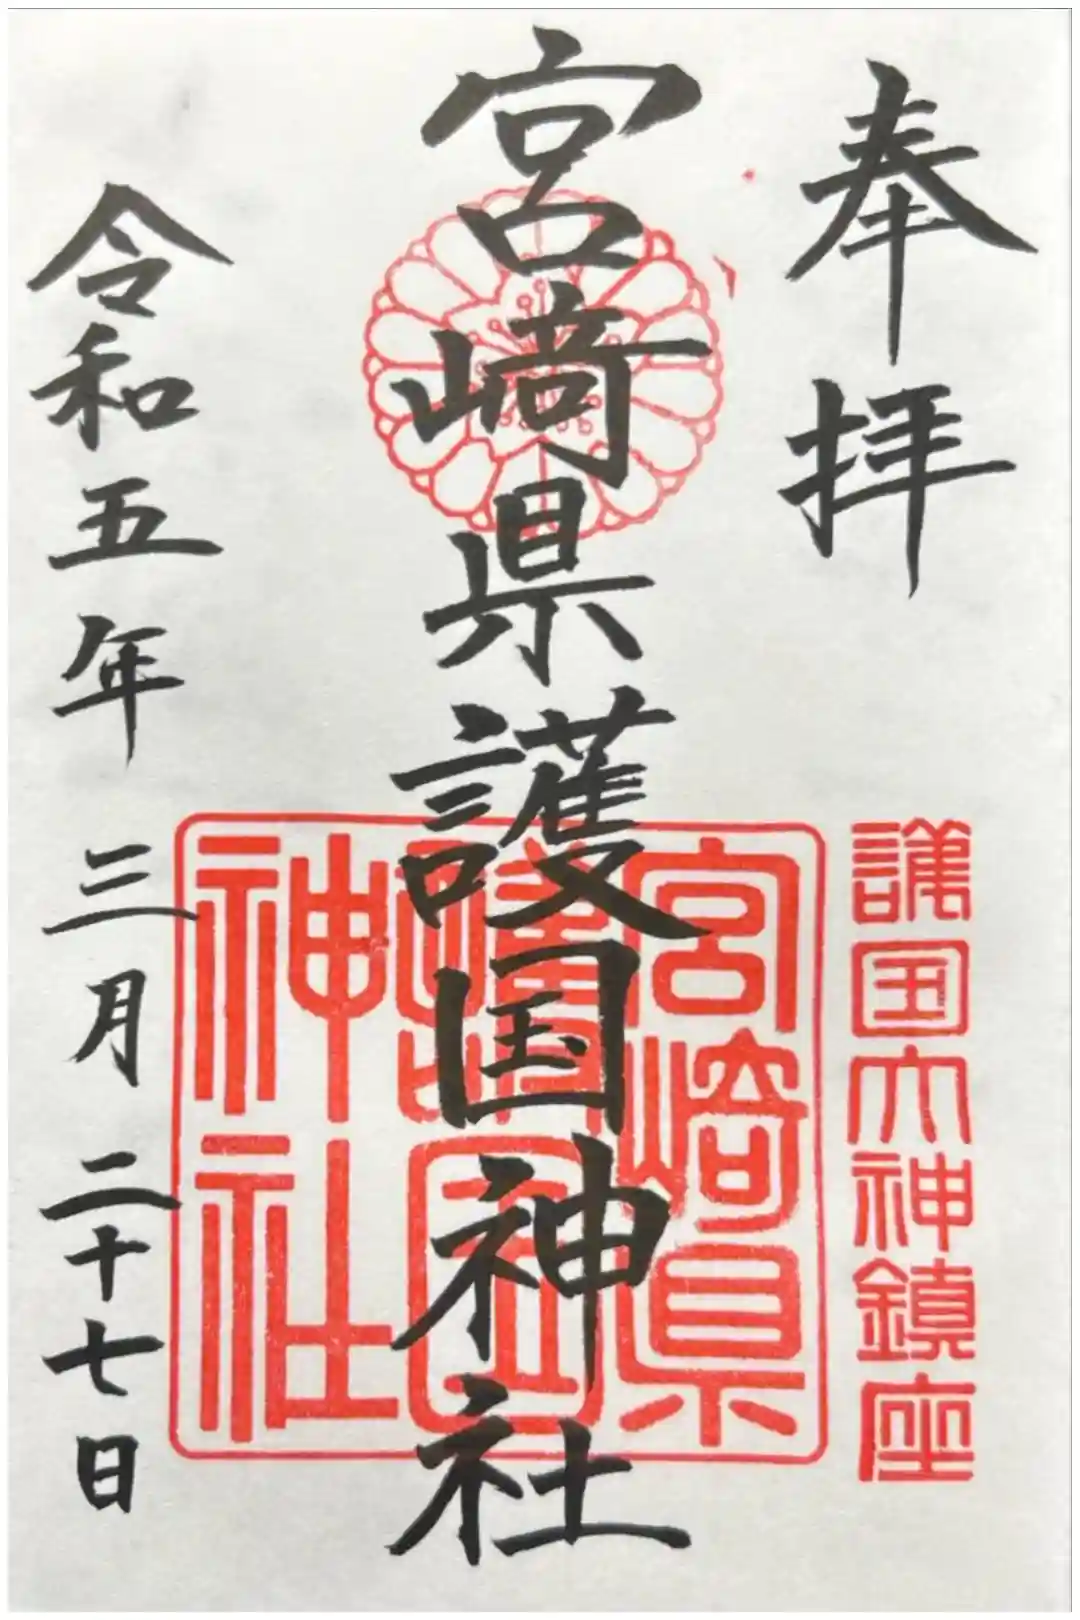 奉拝
護国大神鎮座
宮﨑県護国神社
宮﨑県
護国
神社
令和五年三月二十七日